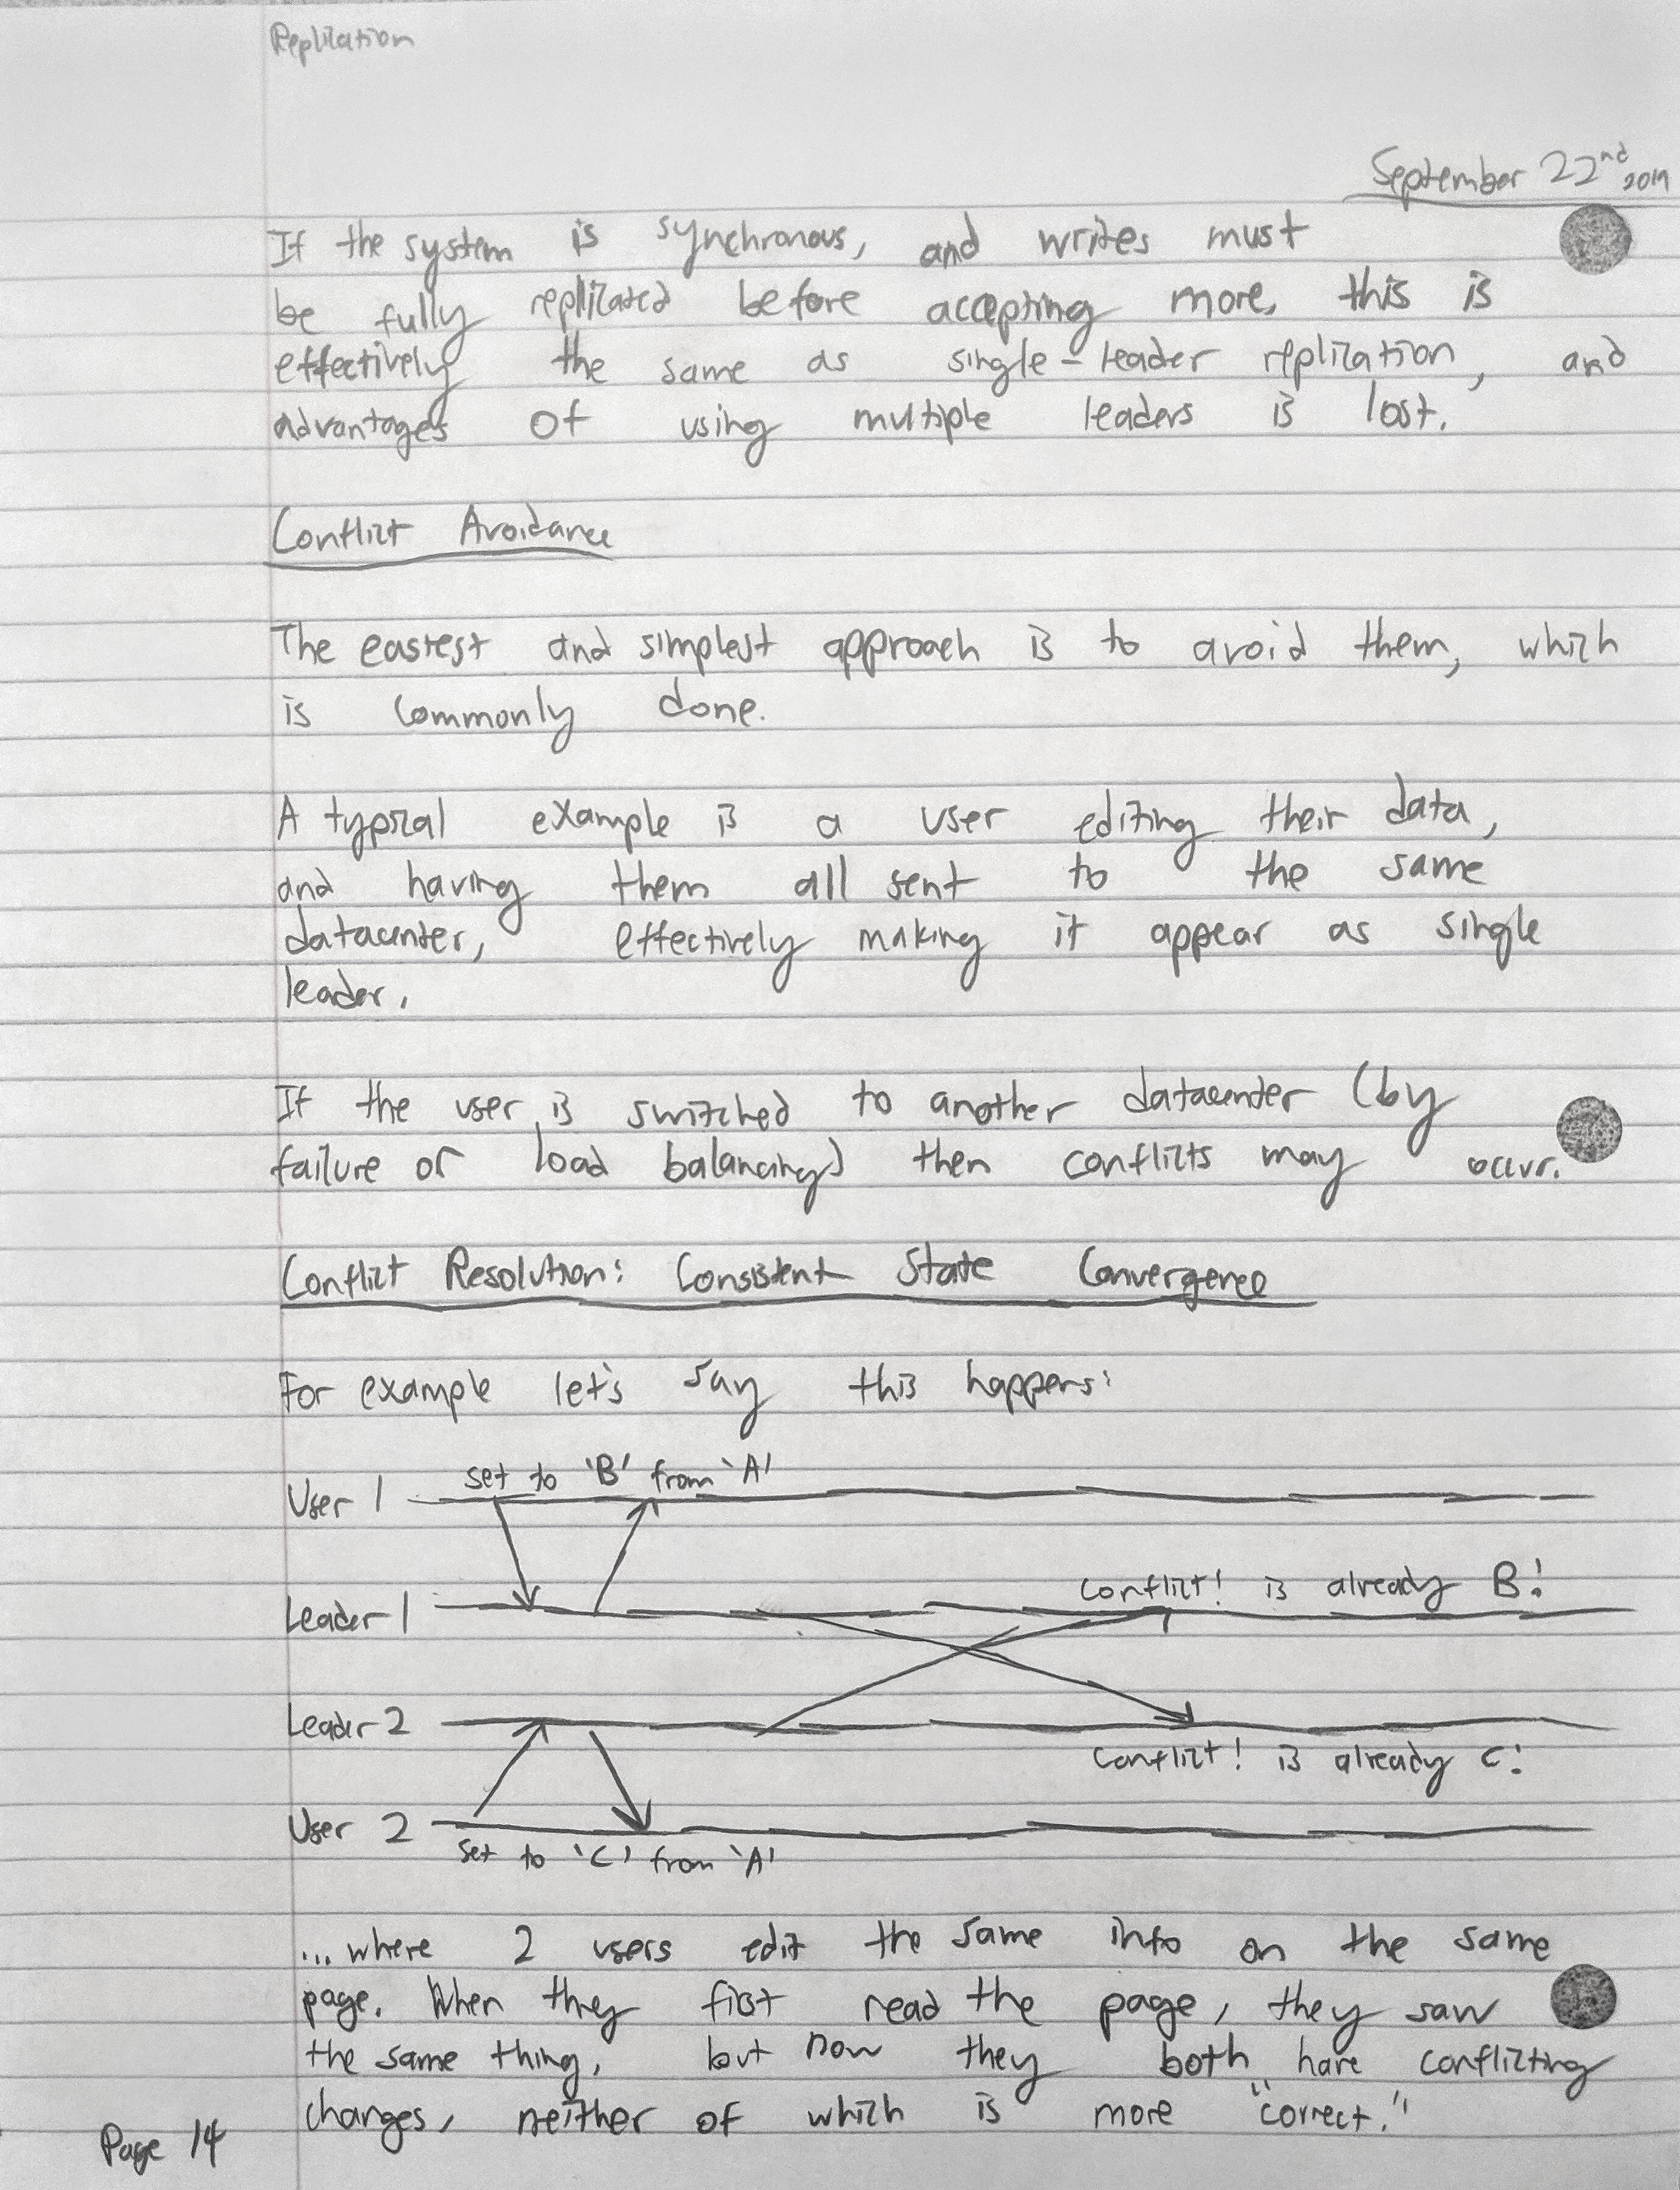 Replication
September 22nd 2019
If the system is synchronous, and writes must
be fully replicated before accepting more, this is
effectively the same as single-leader replication, and
advantages of using multiple leaders is lost.
Conflict Avoidance
The easiest and simplest approach is to avoid them, which
is commonly done.
A typical example is a user editing their data,
and having them all sent to the same
datacenter, effectively making it appear as single
leader.
If the user is switched to another datacenter (by
failure or load balancing) then conflicts may occur.
Conflict Resolution: Consistent State Convergence
For example let's say this happens:
set to 'B' from 'A'
User 1
Conflict! is already B!
Leader 1
Leader 2
Conflict! is already C!
User 2
Set to 'C' from 'A'
...where 2 users edit the same info on the same
page. When they first read the page, they saw
the same thing, but now they both have conflicting
changes, neither of which is more "correct."
Page 14